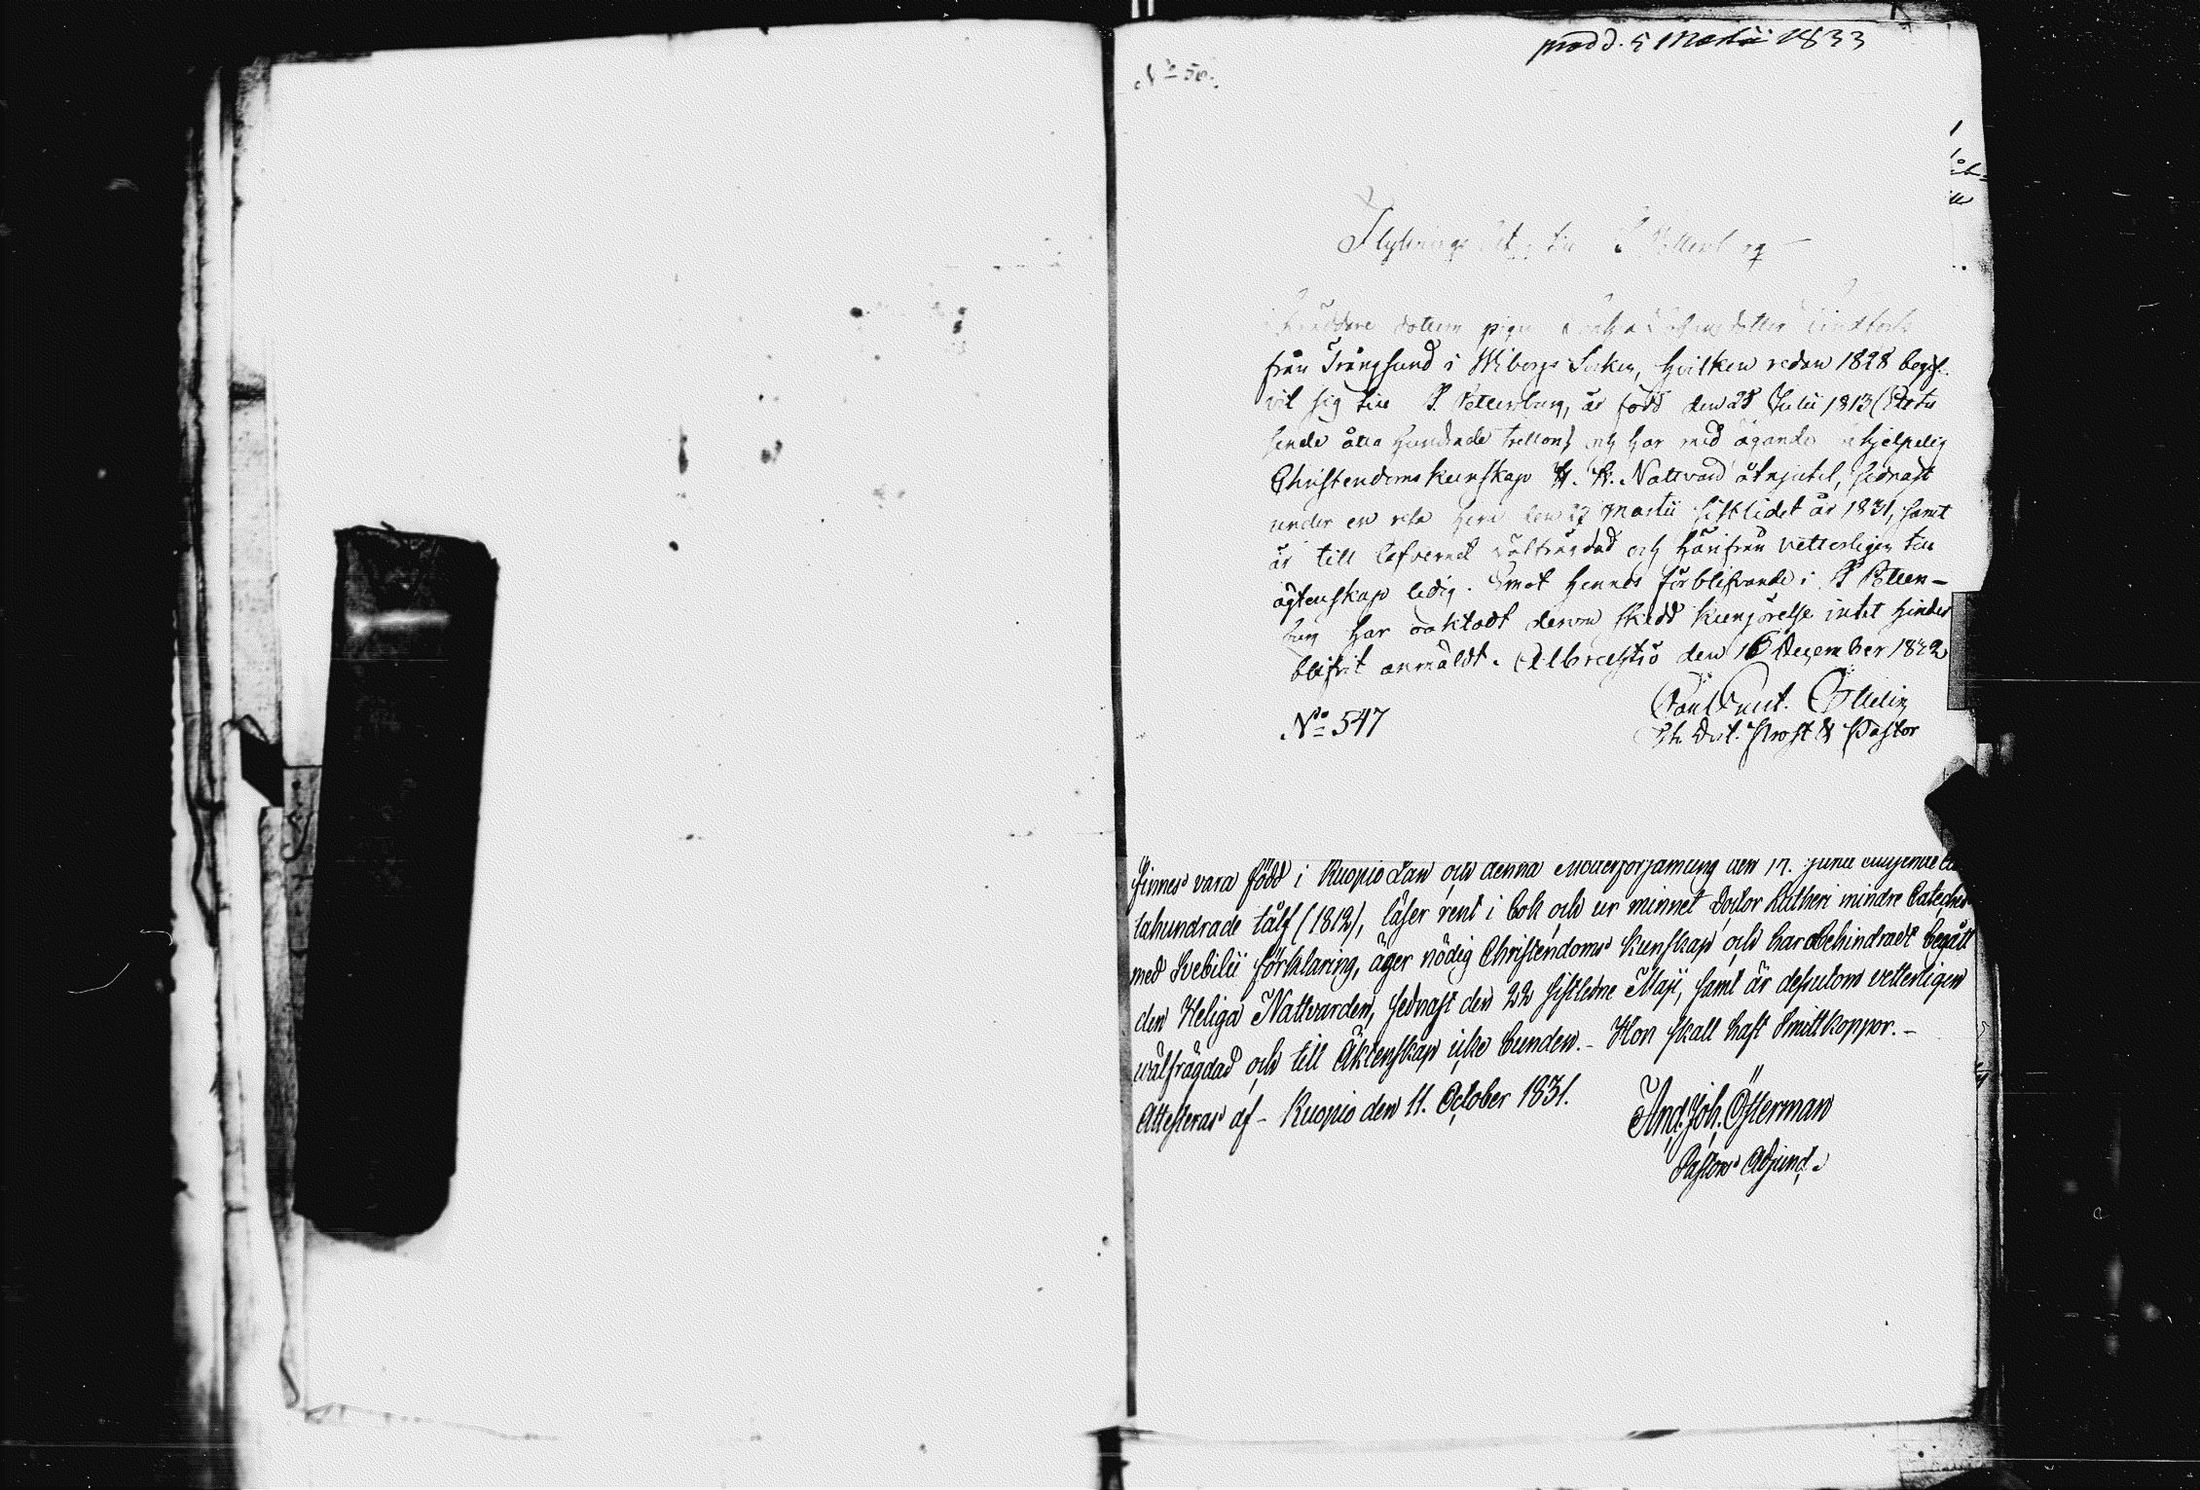 prod d. 5 Martii 1833
N:o 50.
Flyttnings till
dotter
från Trångsund i Wiborgs Socken, hvilken redan 1828 begif-
vit sig till S. Petersburg, är född den 28 Julii 1813 (Ettu
sende åtta hundrade tretton) och har med ägande hjelpelig
Christendoms kunskap H. H. Nattvard åtnjutit, sednast
under en resa den 27 Martii sistlidet år 1831, samt
är till lefvernet välfrägdad och härifrån vetterligen till
ägtenskap ledig. Emot hennes förblifvande i S Peters-
burg har oaktadt derom skedd kungörelse intet hinder
blifvit anmäldt. den 16 December 1832
N:o 547
Prost & Pastor
finnes vara född i Kuopio Län och denna Moderförsamling den 17. Junii
tahundrade tålf (1812), läser rent i bok och ur minnet Doctor Lutheri mindre Cateches
med Svebilii förklaring, äger nödig Christendoms kunskap och har obehindradt begått
den Heliga Nattvarden, sednast den 22 sistledne Maji, samt är dessutom vetterligen
wälfrägdad och till Äktenskap icke bunden. - Hon skall haft Smittkoppor. -
Attesteras af - Kuopio den 11. October 1831.
And. Joh. Österman
Pastors Adjunct.